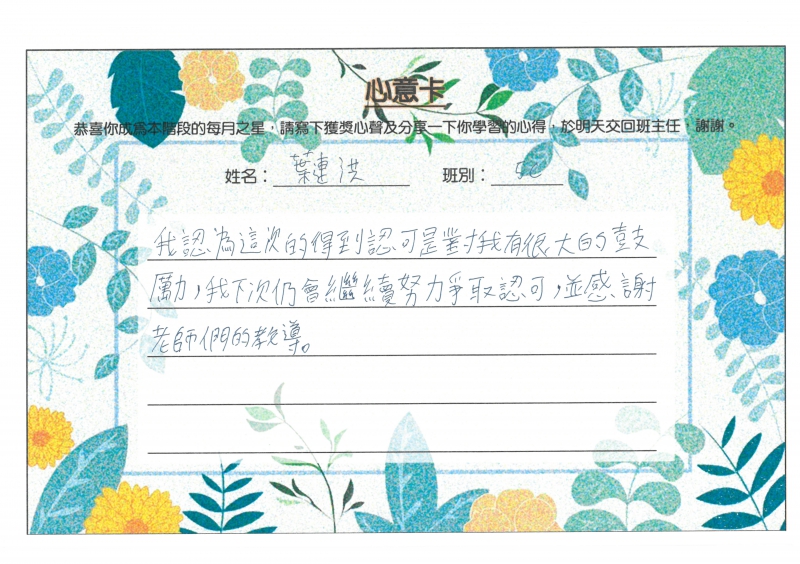 心意卡
恭喜你成為本階段的每月之星，請寫下獲獎心聲及分享一下你學習的心得，於明天交回班主任，謝謝。
姓名：葉連洪 班別：5C
我認為這次的得到認可是對我有很大的鼓
勵，我下次仍會繼續努力爭取認可，並感謝
老師們的教導。